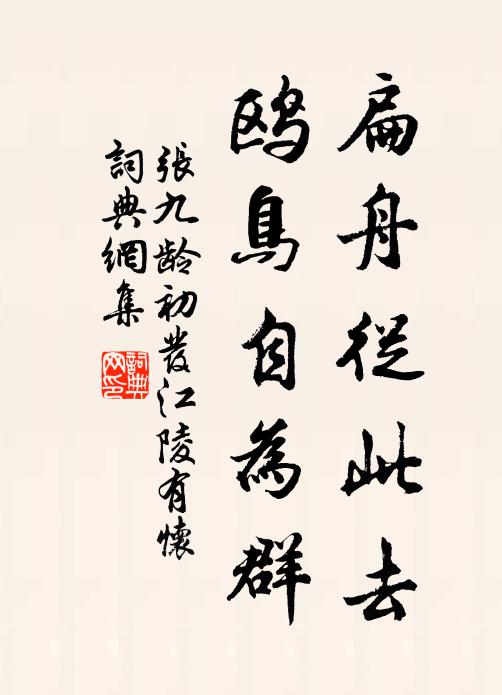 扁舟從此去
鸥鳥自為群
張九龄初發江陵有懷
詞典網集
詞典
网印